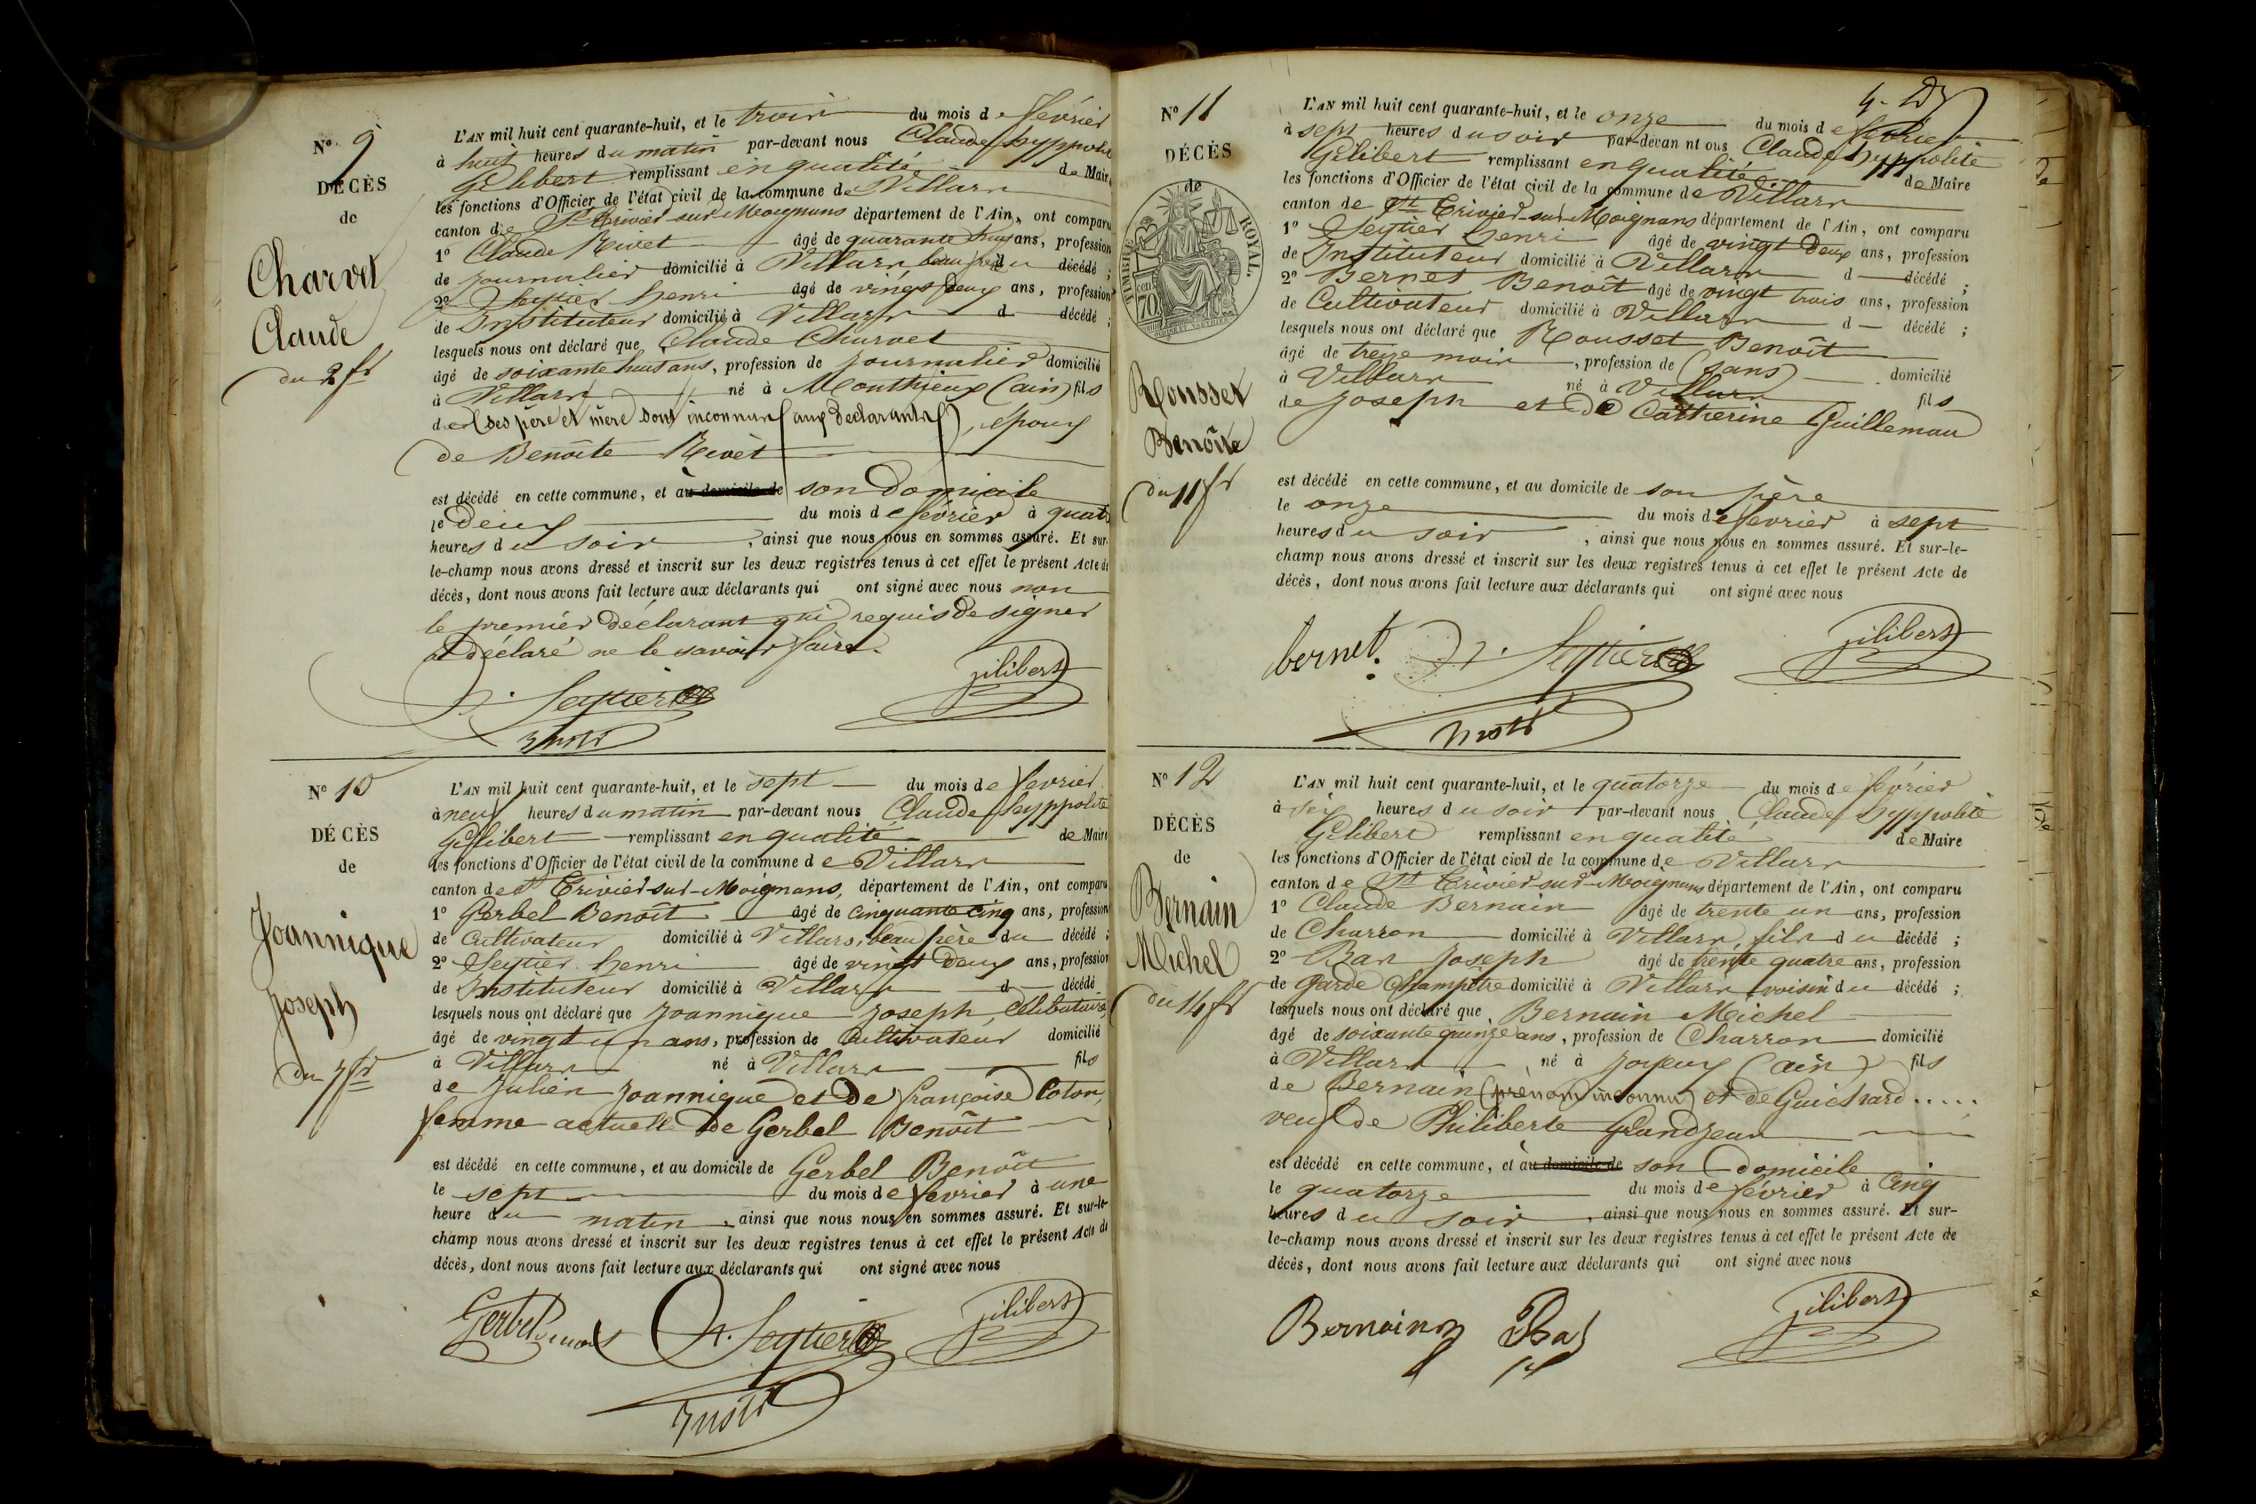 N° 9
DÉCÈS
de
Charvet
Claude
du 2 fr
L'AN mil huit cent quarante-huit, et le trois du mois de février
à huit heures du matin par-devant nous Claude hyppolite
Gilibert remplissant en qualité de Maire
les fonctions d'Officier de l'état civil de la commune de Villars
canton de St Trivier-sur-Moignans département de l'Ain, ont comparu
1° Claude Rivet âgé de quarante huit ans, profession
de journalier domicilié à Villars beau du décédé ;
2° Seytier henri âgé de vingt deux ans, profession
de Instituteur domicilié à Villars d décédé ;
lesquels nous ont déclaré que Claude Charvet
âgé de soixante huit ans, profession de journalier domicilié
à Villars né à Monthieux (ain) fils
de (ses père et mère sont inconnus aux déclarants), époux
de Benoîte Rivet
est décédé en cette commune, et à au domicile de son domicile
le deux du mois de février à quatre
heures du soir, ainsi que nous nous en sommes assuré. Et sur-
le-champ nous avons dressé et inscrit sur les deux registres tenus à cet effet le présent Acte de
décès, dont nous avons fait lecture aux déclarants qui ont signé avec nous non
le premier déclarant qui requis de signer
a déclaré ne le savoir faire.
h. Seytier
gilibert
instr
N° 10
DÉCÈS
de
Joannique
Joseph
du 7 fr
L'AN mil huit cent quarante-huit, et le sept du mois de fevrier
à neuf heures du matin par-devant nous Claude hyppolite
Gilibert remplissant en qualité de Maire
les fonctions d'Officier de l'état civil de la commune de Villars
canton de St Trivier-sur-Moignans, département de l'Ain, ont comparu
1° Gerbel Benoît âgé de cinquante cinq ans, profession
de Cultivateur domicilié à Villars, beau père du décédé ;
2° Seytier henri âgé de vingt deux ans, profession
de Instituteur domicilié à Villars d décédé
lesquels nous ont déclaré que Joannique Joseph, Célibataire,
âgé de vingt un ans, profession de Cultivateur domicilié
à Villars né à Villars fils
de Julien Joannique et de françoise Coton,
femme actuelle de Gerbel Benoît
est décédé en cette commune, et au domicile de Gerbel Benoît
le sept du mois de fevrier à une
heure du matin, ainsi que nous nous en sommes assuré. Et sur-le-
champ nous avons dressé et inscrit sur les deux registres tenus à cet effet le présent Acte de
décès, dont nous avons fait lecture aux déclarants qui ont signé avec nous
Gerbel Benoit h. Seytier gilibert
instr
N° 11
DÉCÈS
de
TIMBRE ROYAL.
70
Rousset
Benoîte
du 11 fr
L'AN mil huit cent quarante-huit, et le onze du mois de fevrier
à sept heures du soir par-devan nt ous Claude hyppolite
Gilibert remplissant en qualité de Maire
les fonctions d'Officier de l'état civil de la commune de Villars
canton de St Trivier-sur-Moignans département de l'Ain, ont comparu
1° Seytier henri âgé de vingt deux ans, profession
de Instituteur domicilié à Villars d décédé ;
2° Bernet Benoît âgé de vingt trois ans, profession
de Cultivateur domicilié à Villars d décédé ;
lesquels nous ont déclaré que Rousset Benoît
âgé de treize mois, profession de (sans) domicilié
à Villars né à Villars fils
de joseph et de Catherine Guillemau
est décédé en cette commune, et au domicile de son père
le onze du mois de fevrier à sept
heures du soir, ainsi que nous nous en sommes assuré. Et sur-le-
champ nous avons dressé et inscrit sur les deux registres tenus à cet effet le présent Acte de
décès, dont nous avons fait lecture aux déclarants qui ont signé avec nous
bernet. h. Seytier gilibert
instr
N° 12
DÉCÈS
de
Bernain
Michel
du 14 fr
L'AN mil huit cent quarante-huit, et le quatorze du mois de février
à six heures du soir par-devant nous Claude hyppolite
Gilibert remplissant en qualité de Maire
les fonctions d'Officier de l'état civil de la commune de Villars
canton de St Trivier-sur-Moignans département de l'Ain, ont comparu
1° Claude Bernain âgé de trente un ans, profession
de Charron domicilié à Villars, fils du décédé ;
2° Bas Joseph âgé de trente quatre ans, profession
de garde Champêtre domicilié à Villars, voisin du décédé ;
lesquels nous ont déclaré que Bernain Michel
âgé de soixante quinze ans, profession de Charron domicilié
à Villars né à Joyeux (ain) fils
de Bernain (prénom inconnu) et de Guichard.....
veuf de Philiberte Grandjean
est décédé en cette commune, et à au domicile de son domicile
le quatorze du mois de février à cinq
heures du soir, ainsi que nous nous en sommes assuré. Et sur-
le-champ nous avons dressé et inscrit sur les deux registres tenus à cet effet le présent Acte de
décès, dont nous avons fait lecture aux déclarants qui ont signé avec nous
Bernain Bas gilibert